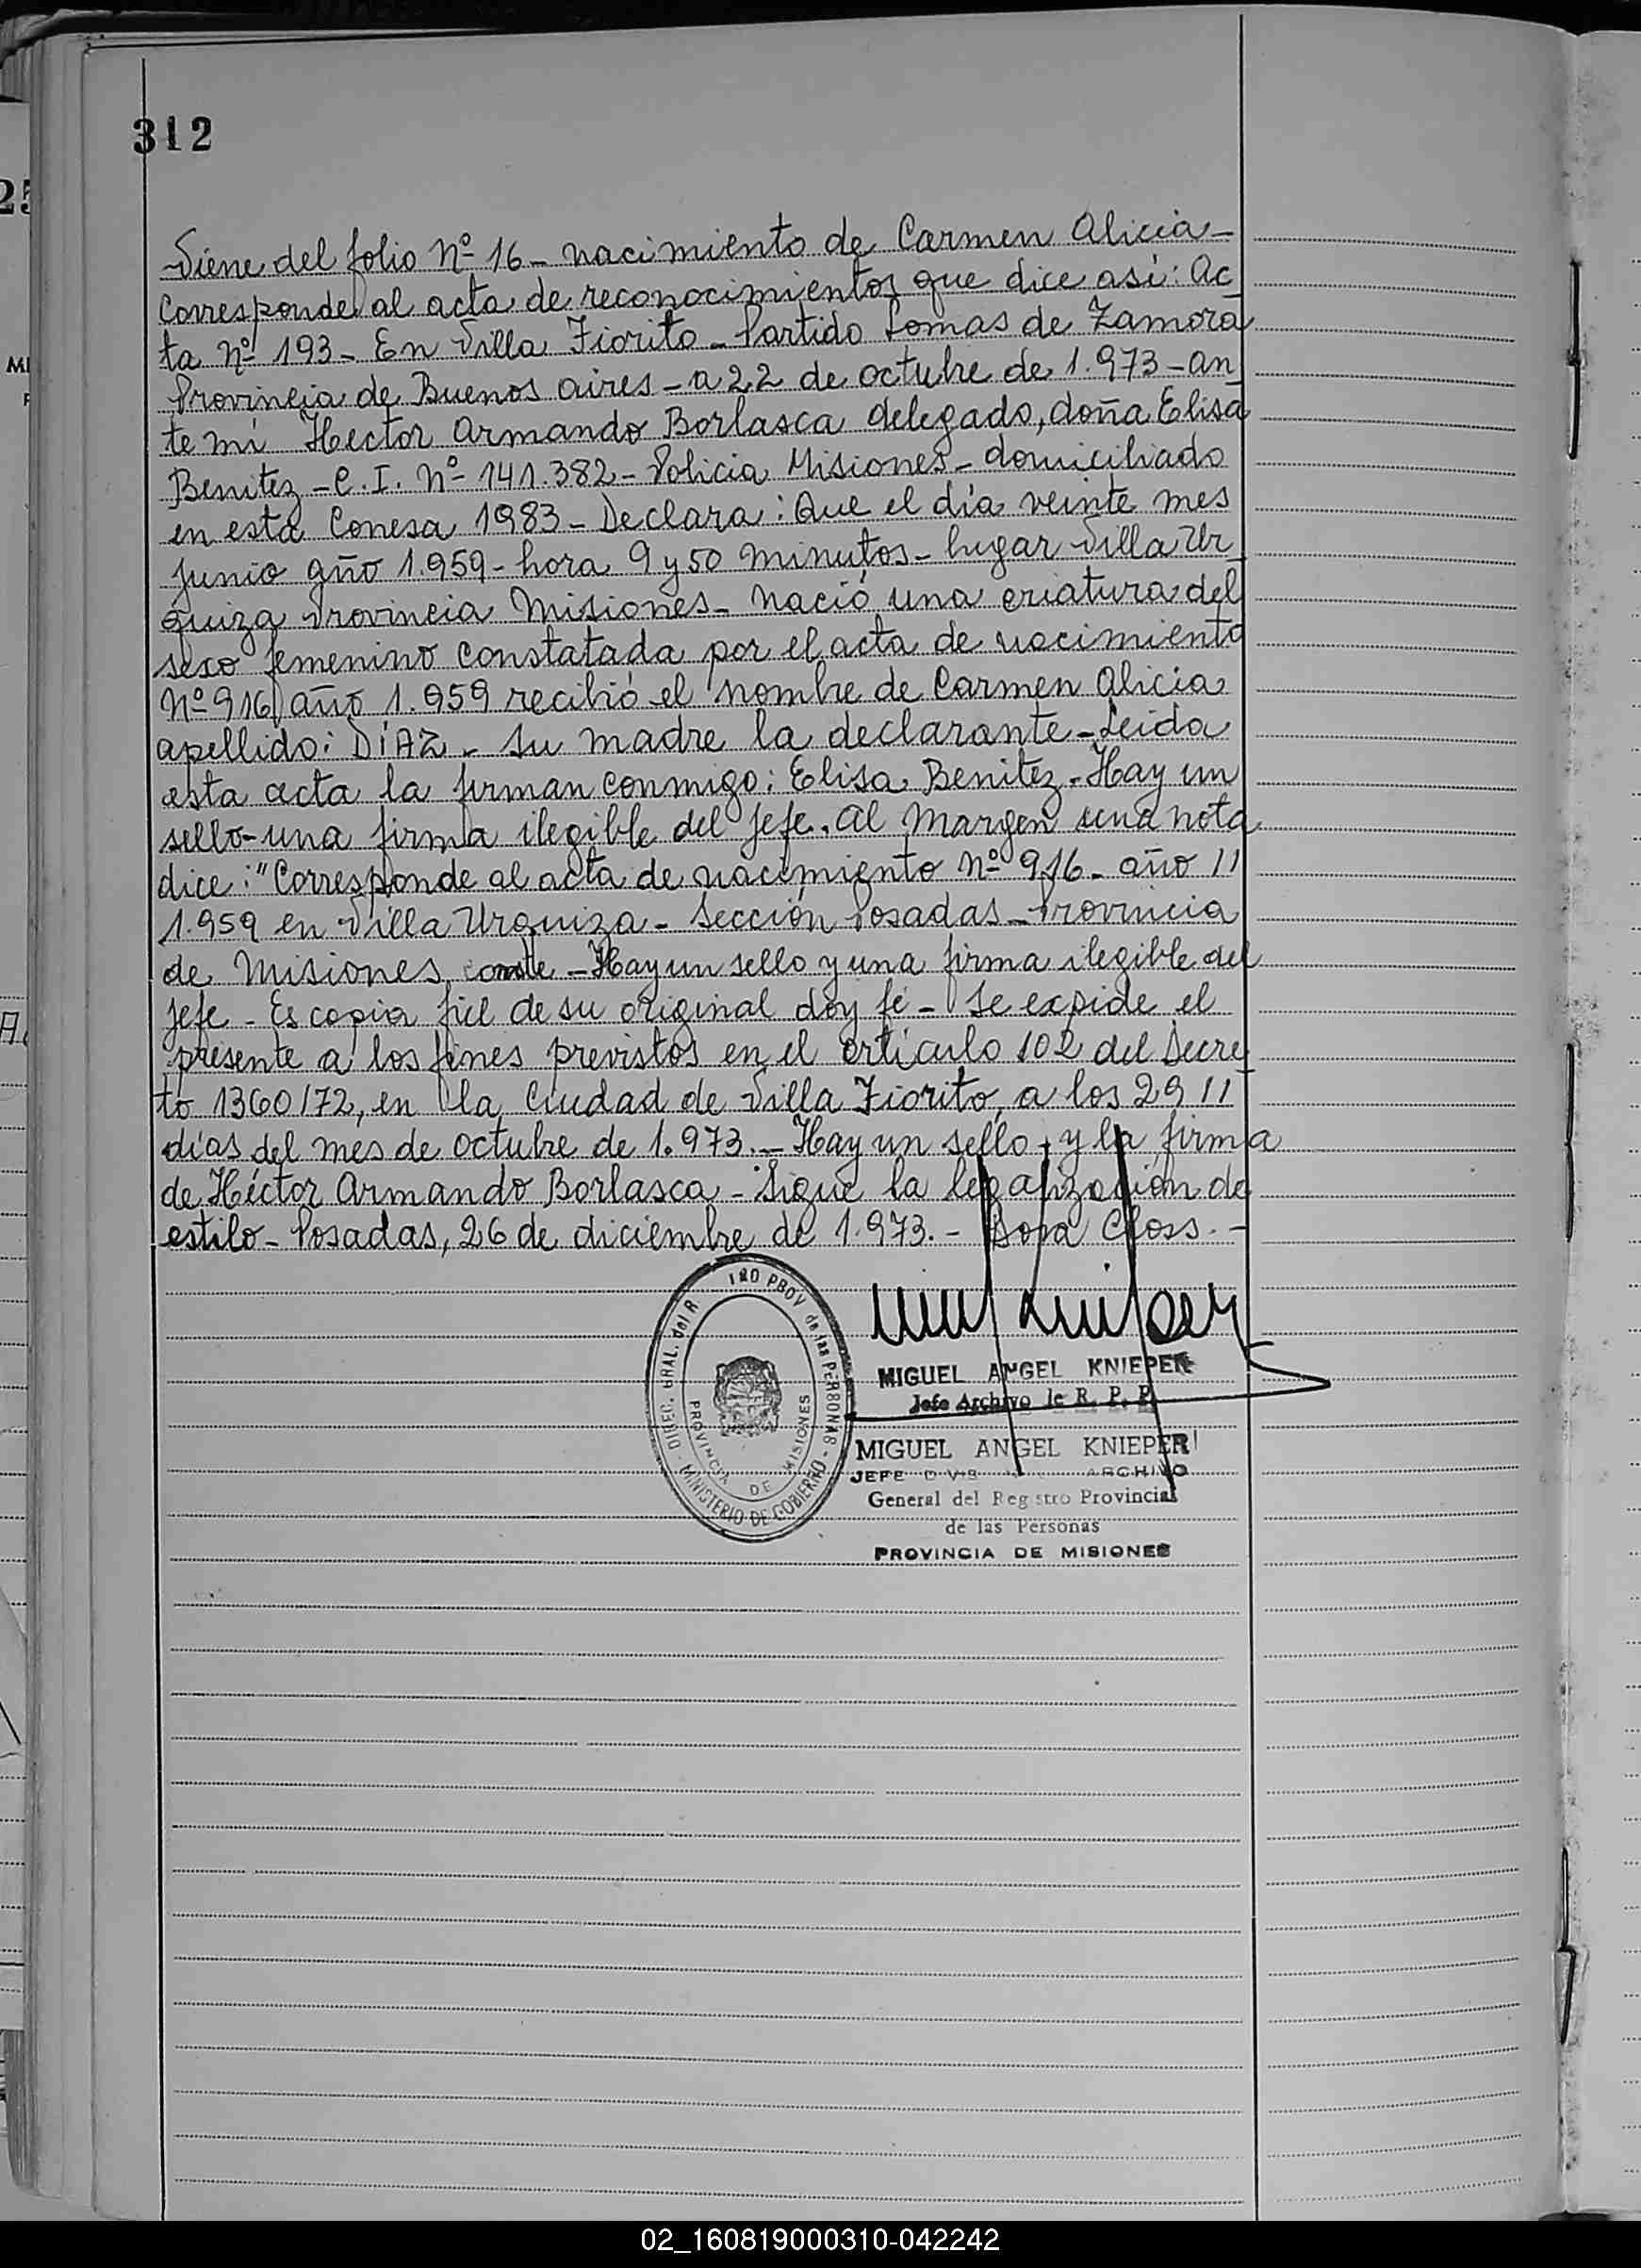 312
Viene del folio Nº 16 - nacimiento de Carmen Alicia -
Corresponde al acta de reconocimientos que dice así: Ac
ta Nº 193 - En Villa Fiorito - Partido Lomas de Zamora
Provincia de Buenos Aires - a 22 de octubre de 1.973 - an
te mí Hector Armando Borlasca delegado, doña Elisa
Benitez - C.I. Nº 141.382 - Policia Misiones - domiciliado
en esta Conesa 1983 - Declara: Que el día veinte mes
Junio año 1.959 - hora 9 y 50 minutos - lugar Villa Ur
quiza Provincia Misiones - nació una criatura del
sexo femenino constatada por el acta de nacimiento
Nº 916 año 1.959 recibió el nombre de Carmen Alicia
apellido: DÍAZ - Su madre la declarante - Leida
esta acta la firman conmigo: Elisa Benitez - Hay un
sello - una firma ilegible del jefe. Al margen una nota
dice: "Corresponde al acta de nacimiento Nº 916 - año //
1.959 en Villa Urquiza - Sección Posadas - Provincia
de Misiones conste - Hay un sello y una firma ilegible del
jefe - Es copia fiel de su original doy fé - Se expide el
presente a los fines previstos en el artículo 102 del Decre
to 1360/72, en la Ciudad de Villa Fiorito, a los 29 //
días del mes de octubre de 1.973. - Hay un sello y la firma
de Héctor Armando Borlasca - Sigue la legalización de
estilo - Posadas, 26 de diciembre de 1.973. - Dora Closs. -
MIGUEL ANGEL KNIEPER
Jefe Archivo de R. P. P.
MIGUEL ANGEL KNIEPER
JEFE ARCHIVO
General del Registro Provincial
de las Personas
PROVINCIA DE MISIONES
PROV de las PERSONAS - MINISTERIO DE GOBIERNO - DIREC. GRAL. del R
PROVINCIA DE MISIONES
02_160819000310-042242